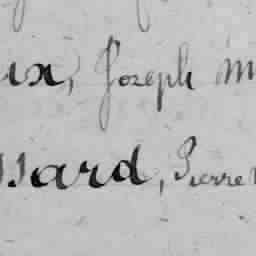 ux, Joseph M
ssard, Pierre